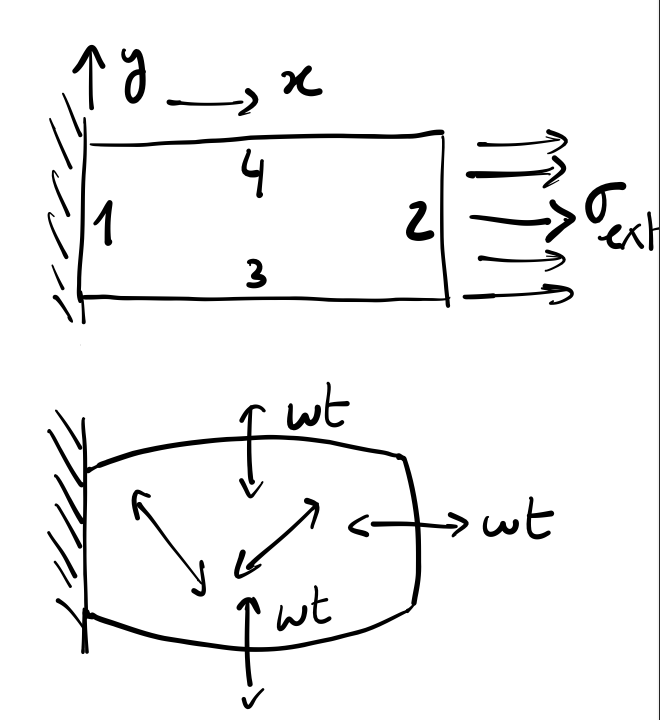 y x
4
1 2
3
σext
wt
wt
wt